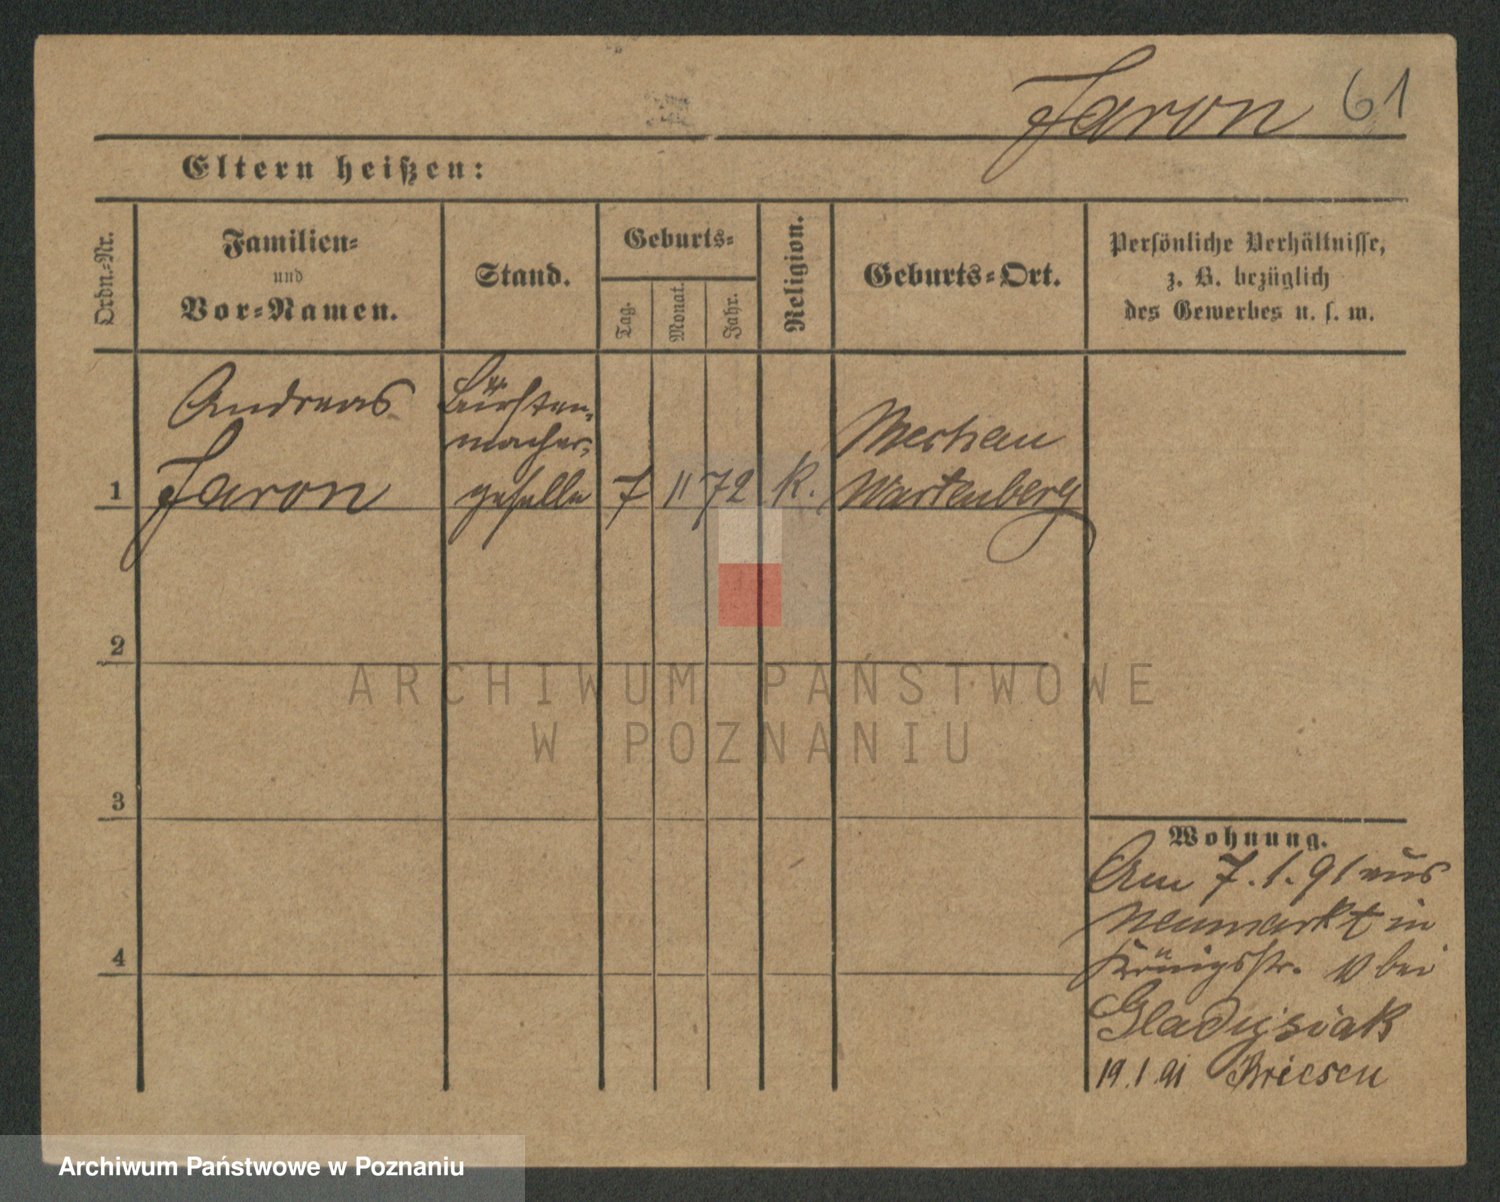 Jaron 61
Eltern heißen:
Ordn.-Nr.
Familien-
und
Vor-Namen.
Stand.
Geburts-
Tag.
Monat.
Jahr.
Religion.
Geburts-Ort.
Persönliche Verhältnisse,
z. B. bezüglich
des Gewerbes u. s. w.
Andreas
Jaron
Bürsten-
macher-
geselle
1
7
11
72
K.
Mechau
Wartenberg
2
3
4
Wohnung.
Am 7.1.91 aus
Neumarkt in
Königsstr. 10 bei
Gladysiak
19.1.91 Briesen
ARCHIWUM PAŃSTWOWE
W POZNANIU
Archiwum Państwowe w Poznaniu